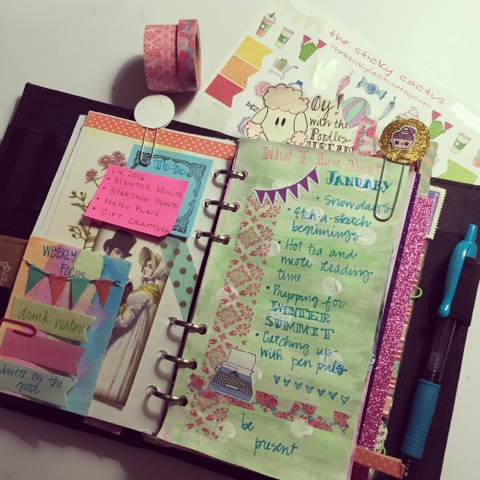 the sticky cactus
TheStickyCactus.etsy.com
Oy!
with the
Poodles
ALREADY
To-Do
1.4.2016
• MENTOR MINUTE
• STARTING POINTS
• MENU PLAN
• GIFT CRAFTING
WEEKLY
FOCUS
drink water
dwell on the
good
What I Love About
JANUARY
• Snow days
• Etch-a-sketch
beginnings
• Hot tea and
more reading
time
• Prepping for
WINTER
SUMMIT
• Catching up
with pen pals
be
present